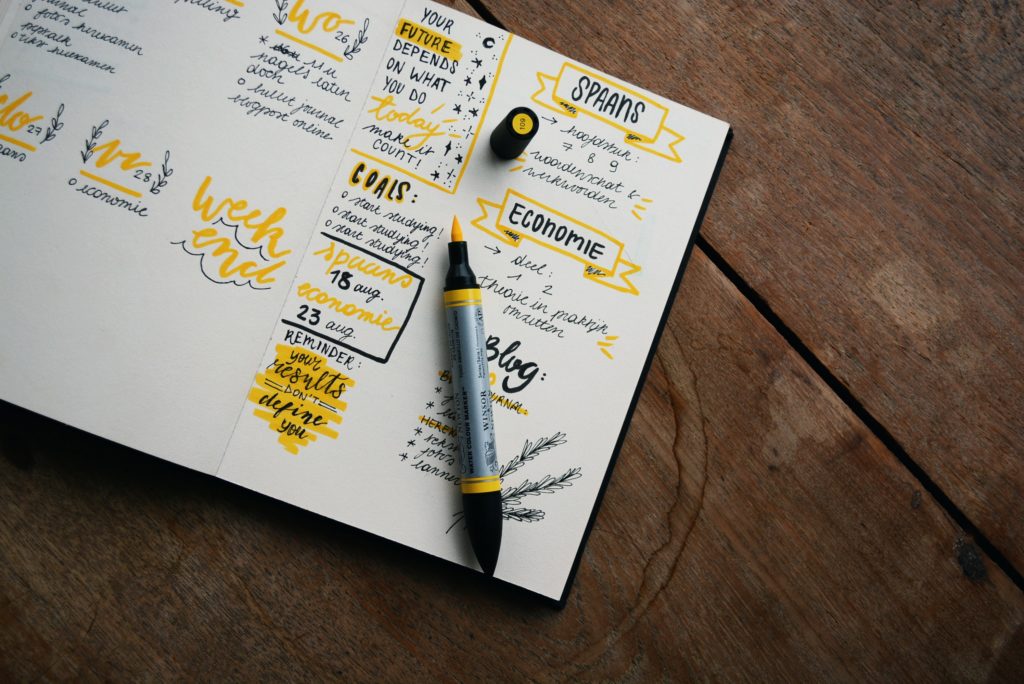 o fotos herexamen
herexamen
WO
26
11 u
nagels laten
doen
o bullet journal
blogpost online
DO
27
VR
28
o economie
week
end
YOUR
FUTURE
DEPENDS
ON WHAT
YOU DO
today
make it
COUNT!
GOALS:
o start studying!
o start studying!
o start studying!
Spaans
18 aug.
economie
23 aug.
REMINDER:
your
results
DON'T
define
you
109
SPAANS
→ hoofdstuk:
7 8 9
woordenschat &
werkwoorden
ECONOMIE
→ deel:
1 2
theorie in praktijk
omzetten
Blog:
JOURNAL:
HEREX
WATER COLOUR MARKER
WINSOR